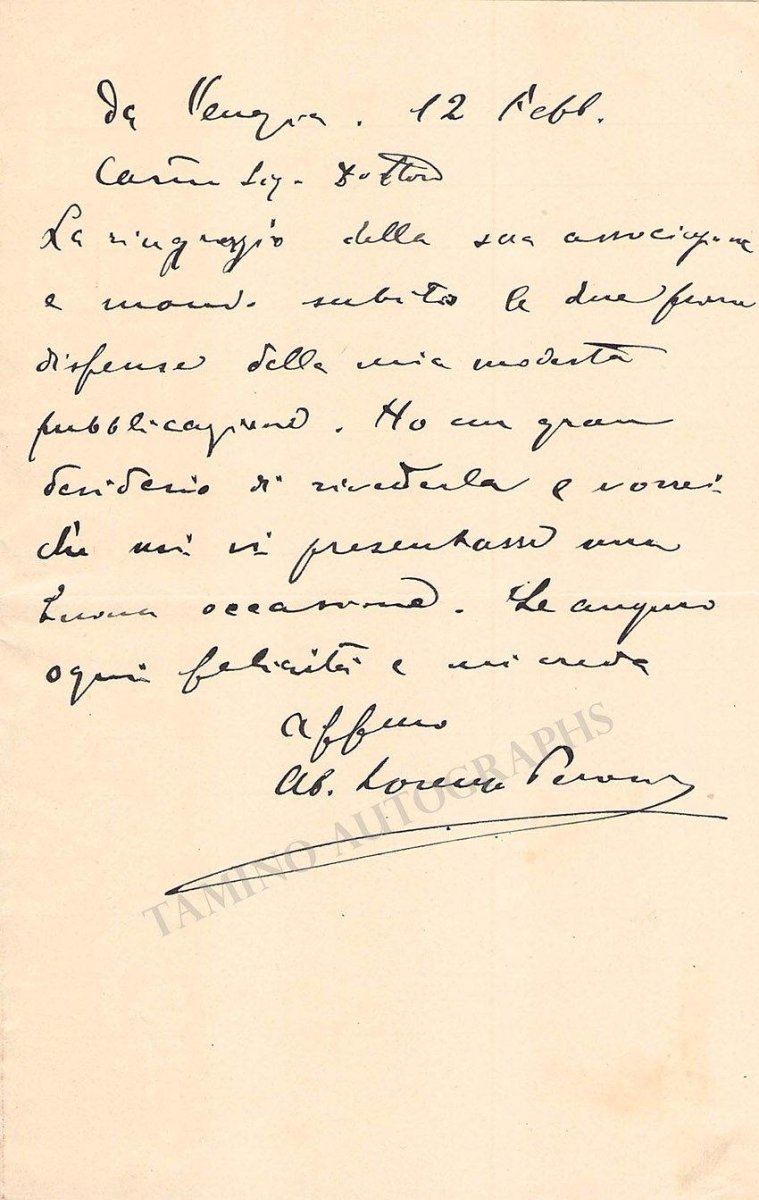 Da Venezia. 12 Febb.
Carmo Sig. Dottore
La ringrazio della sua associazione
e mando subito le due prime
dispense della mia modesta
pubblicazione. Ho un gran
desiderio di rivederla e vorrei
che mi si presentasse una
buona occasione. Le auguro
ogni felicità e mi creda
affmo
Ab. Lorenzo Perosi
TAMINO AUTOGRAPHS